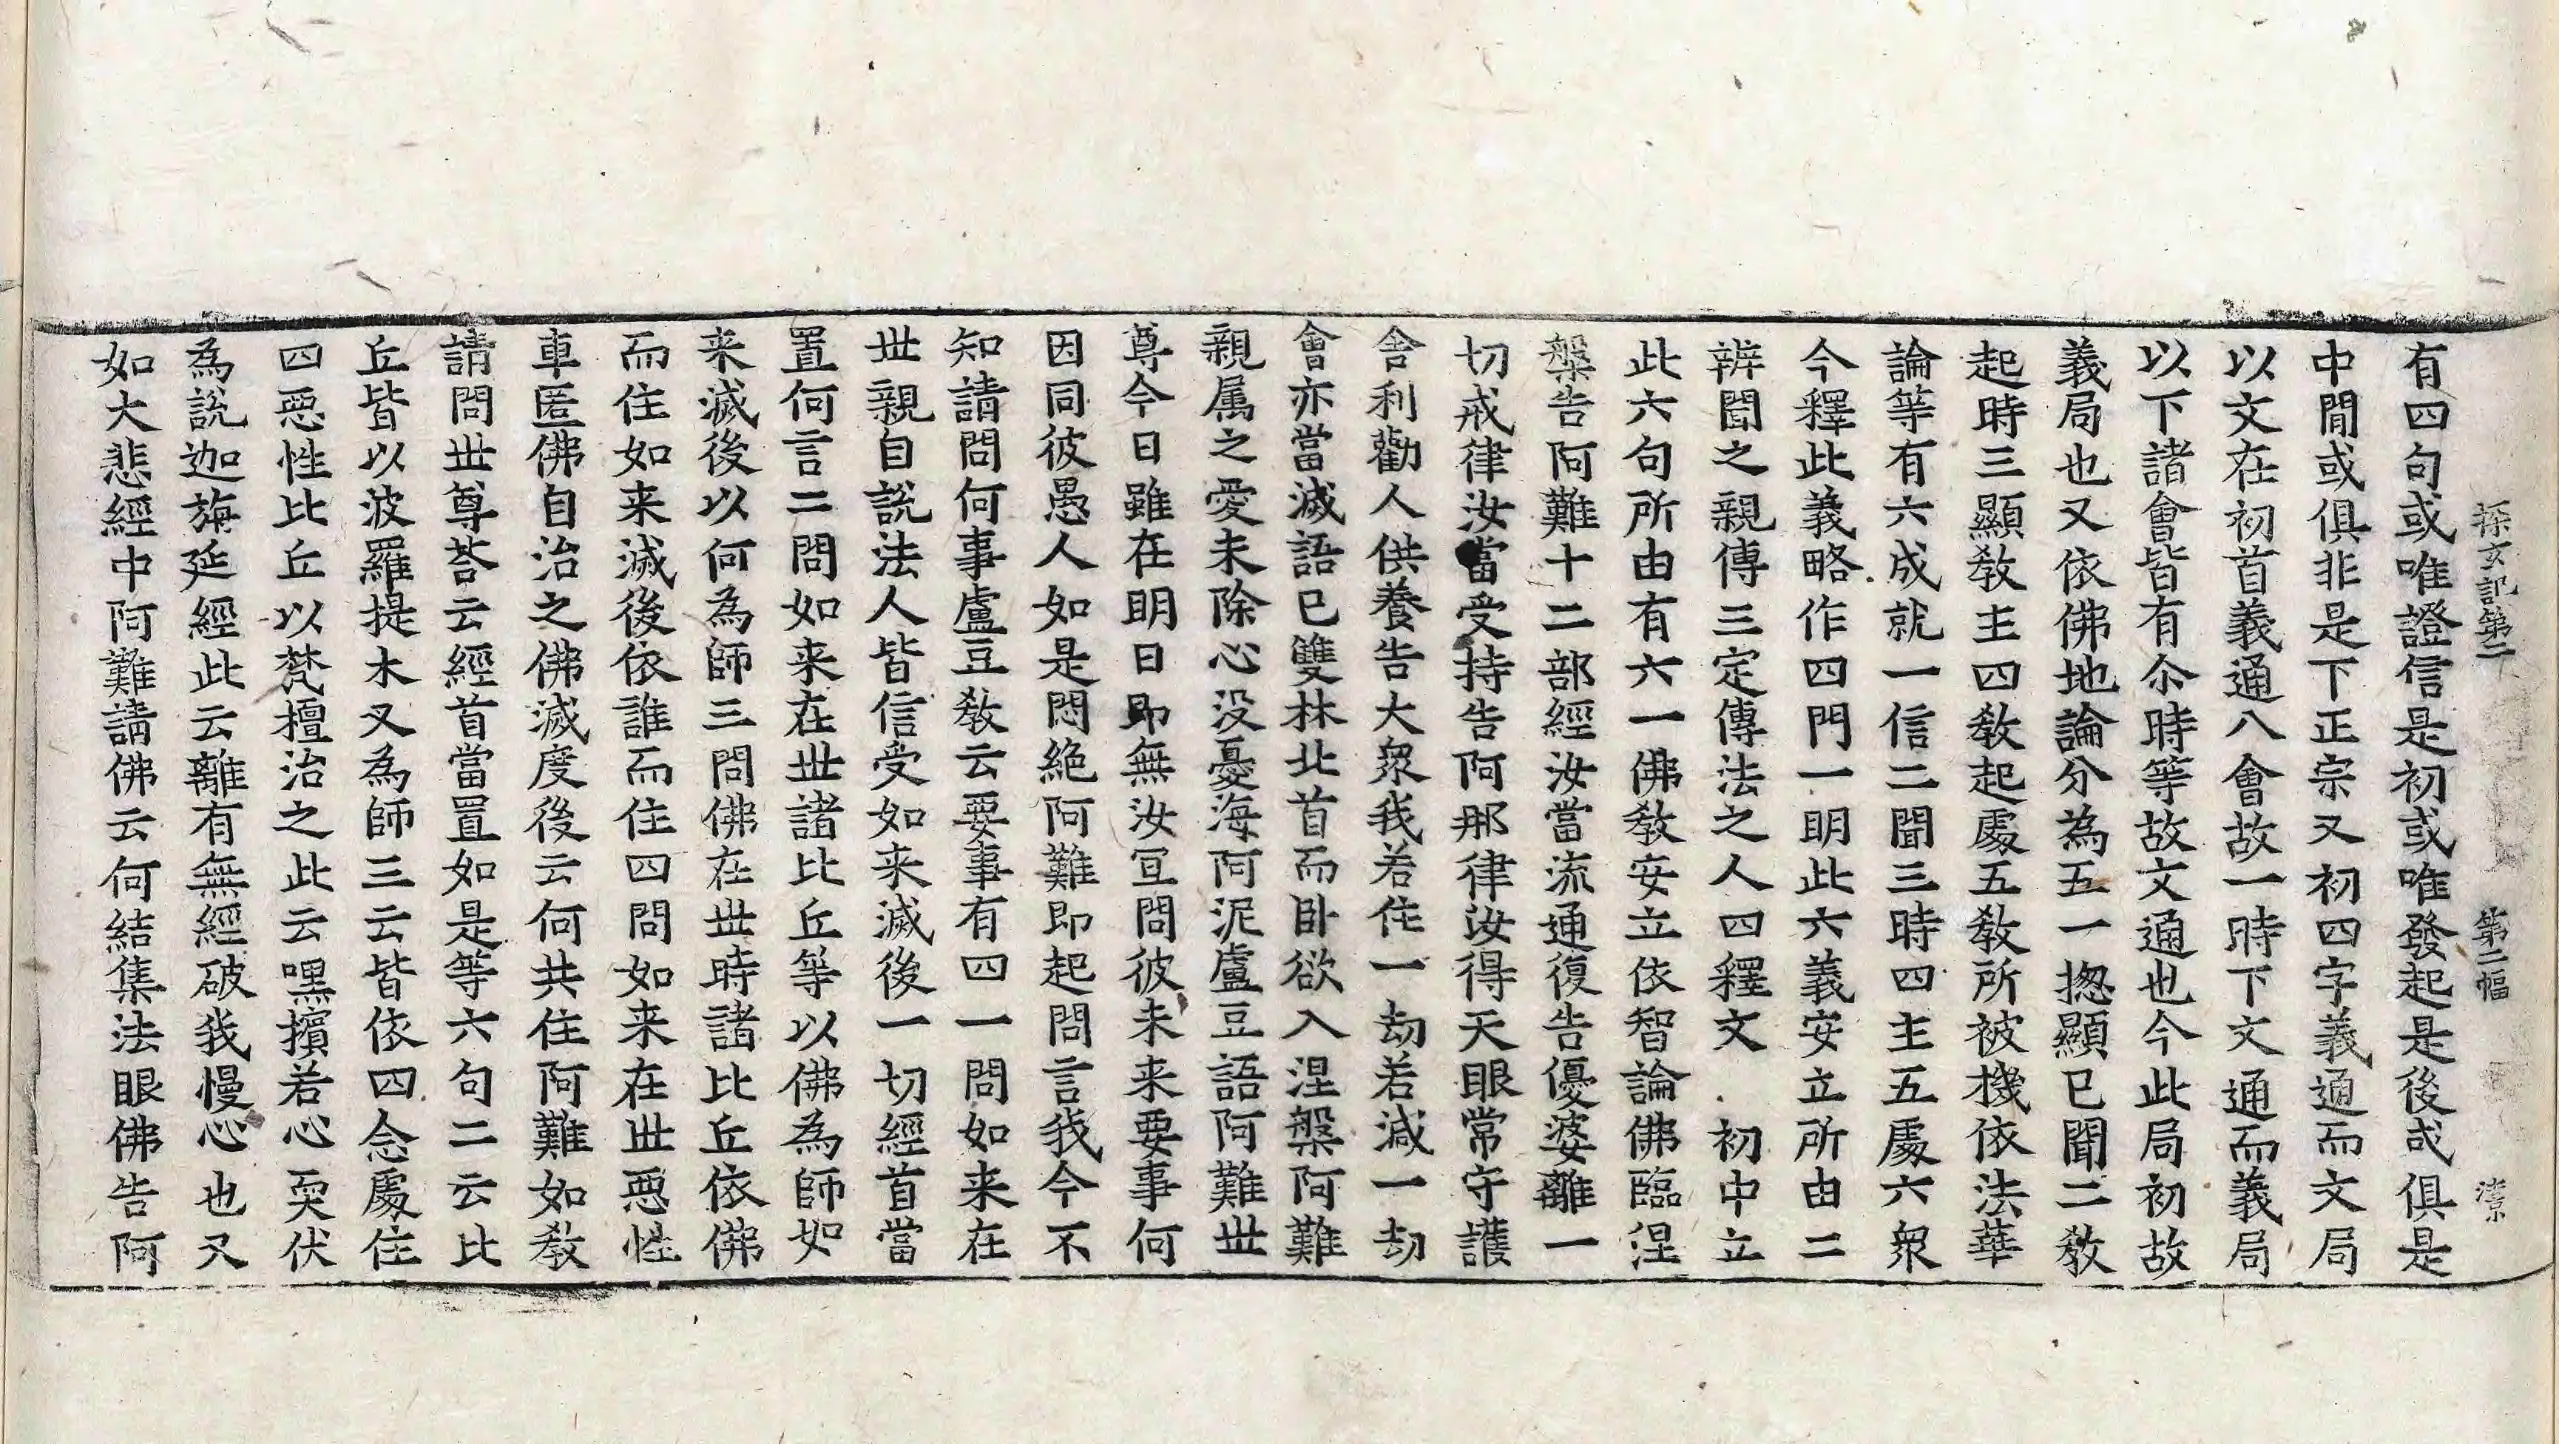 探玄記第二　第二幅
有四句或唯證信是初或唯發起是後或俱是
中間或俱非是下正宗又初四字義通而文局
以文在初首義通八會故一時下文通而義局
以下諸會皆有尒時等故文通也今此局初故
義局也又依佛地論分為五一揔顯已聞二教
起時三顯教主四教起處五教所被機依法華
論等有六成就一信二聞三時四主五處六衆
今釋此義略作四門一明此六義安立所由二
辨聞之親傳三定傳法之人四釋文　初中立
此六句所由有六一佛教安立依智論佛臨涅
槃告阿難十二部經汝當流通復告優婆離一
切戒律汝當受持告阿那律汝得天眼常守護
舍利勸人供養告大衆我若住一劫若減一劫
會亦當滅語已雙林北首而臥欲入涅槃阿難
親属之愛未除心没憂海阿泥盧豆語阿難世
尊今日雖在明日即無汝宜問彼未来要事何
因同彼愚人如是悶絶阿難即起問言我今不
知請問何事盧豆教云要事有四一問如来在
世親自説法人皆信受如来滅後一切經首當
置何言二問如来在世諸比丘等以佛為師如
来滅後以何為師三問佛在世時諸比丘依佛
而住如来滅後依誰而住四問如来在世惡性
車匿佛自治之佛滅度後云何共住阿難如教
請問世尊荅云經首當置如是等六句二云比
丘皆以波羅提木叉為師三云皆依四念處住
四惡性比丘以梵檀治之此云嘿擯若心耎伏
為説迦旃延經此云離有無經破我慢心也又
如大悲經中阿難請佛云何結集法眼佛告阿